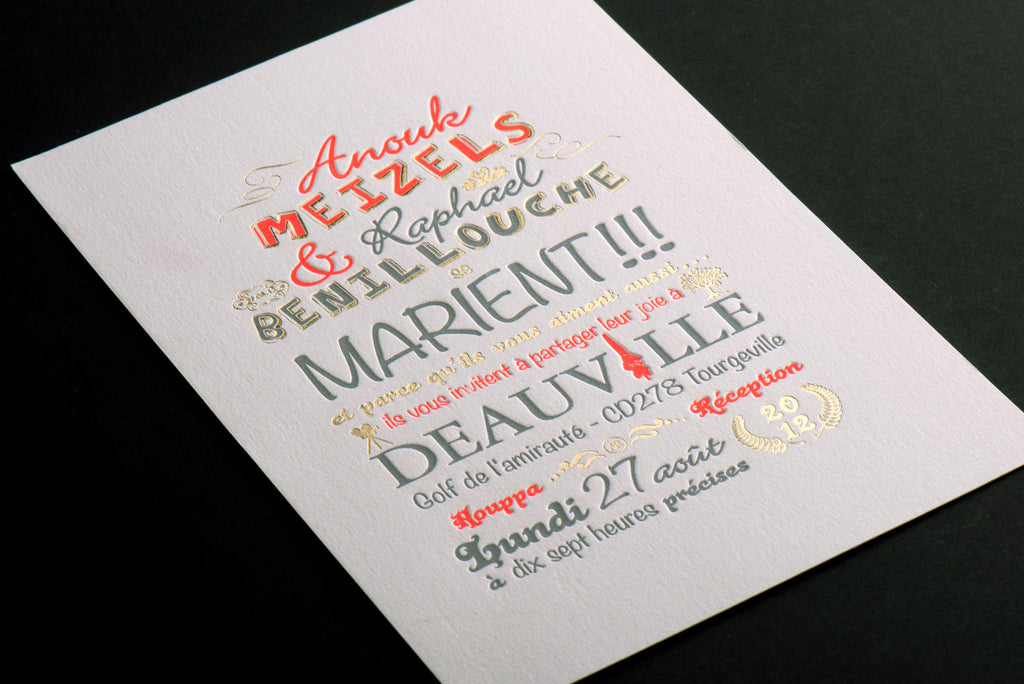 Anouk
MEIZELS
& Raphael
BENILLOUCHE
se
MARIENT!!!
et parce qu'ils vous aiment aussi...
ils vous invitent à partager leur joie à
DEAUVILLE
Golf de l'amirauté - CD278 Tourgeville
Houppa Réception
Lundi 27 août 2012
à dix sept heures précises